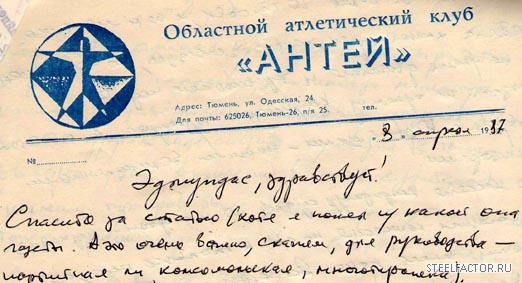 Областной атлетический клуб
«АНТЕЙ»
Адрес: Тюмень, ул. Одесская, 24.
Для почты: 625026, Тюмень-26, п/я 25. тел.
„8" апреля 1987
№
Эдмундас, здравствуй!
Спасибо за статью (хотя я понял из какой она
газеты. А это очень важно, скажем, для руководства —
партийная ли, комсомольская, многотиражная).
STEELFACTOR.RU